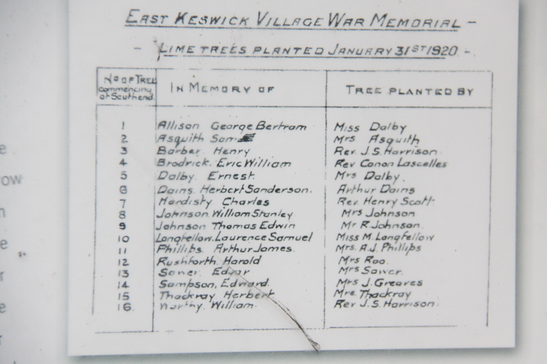 EAST KESWICK VILLAGE WAR MEMORIAL -
- LIME TREES PLANTED JANUARY 31ST 1920 -
No OF TREE Commencing at South end IN MEMORY OF TREE PLANTED BY
1 Allison George Bertram Miss Dalby
2 Asquith Sam Mrs Asquith
3 Barber Henry Rev J.S. Harrison.
4 Brodrick. Eric William Rev Canon Lascelles
5 Dalby Ernest Mrs Dalby.
6 Dains. Herbert Sanderson. Arthur Dains
7 Hardisty Charles Rev Henry Scott
8 Johnson William Stanley Mrs Johnson
9 Johnson Thomas Edwin Mr R Johnson.
10 Longfellow. Laurence Samuel Miss M. Longfellow
11 Phillips Arthur James. Mrs. A.J Phillips
12 Rushforth, Harold Mrs Roo.
13 Sawer. Edgar Mrs Sawer.
14 Sampson, Edward. Mrs J Greaves
15 Thackray Herbert Mrs. Thackray
16. Worthy. William. Rev J.S. Harrison.
ow